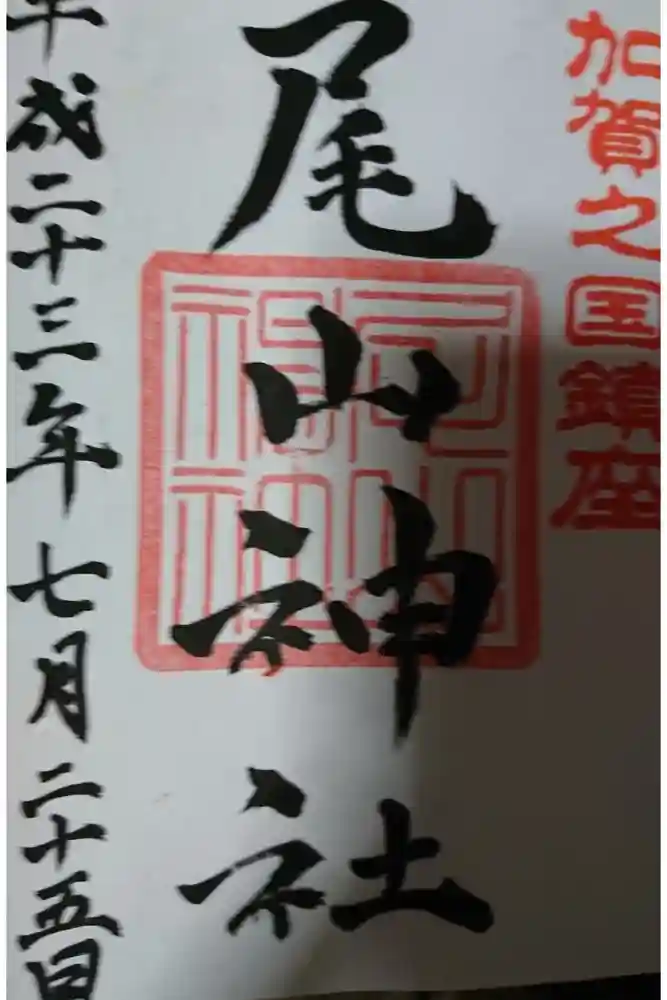 加賀之国鎮座
尾山神社
尾山神社
平成二十三年七月二十五日